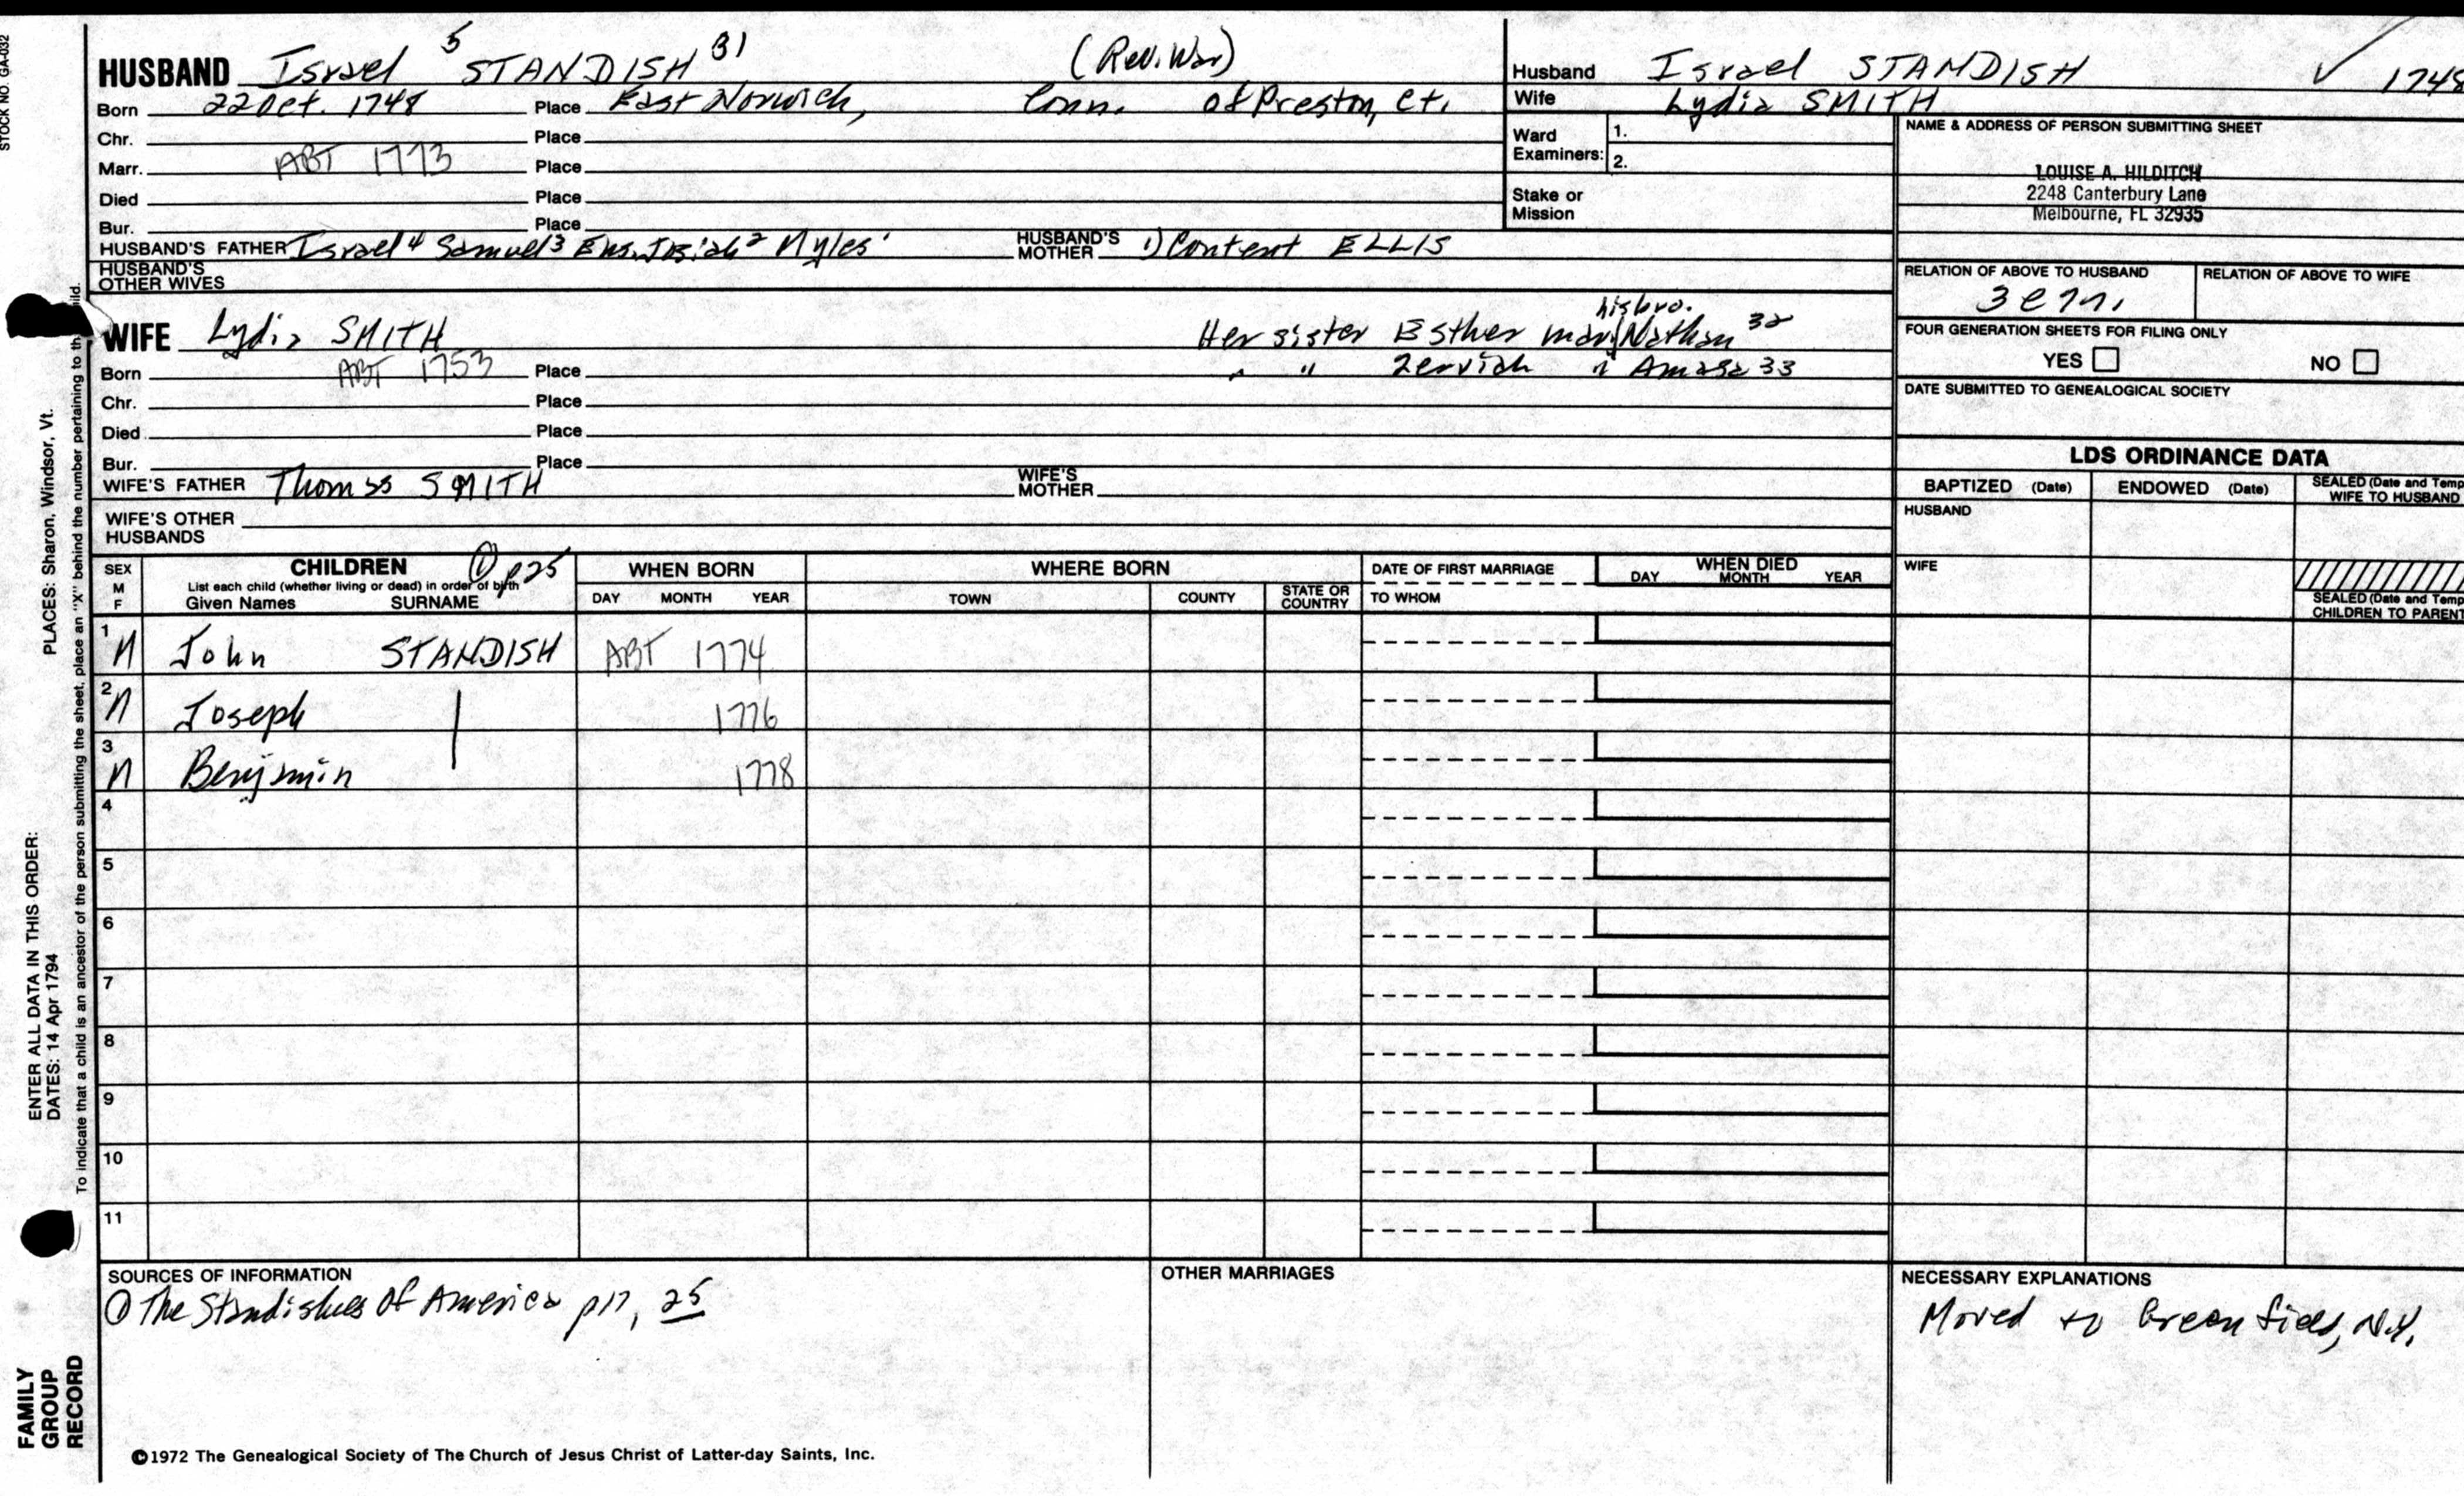 STOCK NO. GA-032
HUSBAND Israel 5 STANDISH 31 (Rev. War)
Born 22 Oct. 1748 Place East Norwich, Conn. of Preston, Ct.
Chr. Place
Marr. ABT 1773 Place
Died Place
Bur. Place
HUSBAND'S FATHER Israel 4 Samuel 3 Ens. Josiah 2 Myles 1 HUSBAND'S MOTHER 1) Content ELLIS
HUSBAND'S OTHER WIVES
Husband Israel STANDISH ✓ 1748
Wife Lydia SMITH
Ward Examiners: 1.
2.
Stake or Mission
NAME & ADDRESS OF PERSON SUBMITTING SHEET
LOUISE A. HILDITCH
2248 Canterbury Lane
Melbourne, FL 32935
RELATION OF ABOVE TO HUSBAND RELATION OF ABOVE TO WIFE
FOUR GENERATION SHEETS FOR FILING ONLY
YES NO
DATE SUBMITTED TO GENEALOGICAL SOCIETY
his bro.
WIFE Lydia SMITH Her sister Esther mar. Nathan 32
Born ABT 1753 Place " " Zerviah " Amasa 33
Chr. Place
Died Place
Bur. Place
WIFE'S FATHER Thomas SMITH WIFE'S MOTHER
WIFE'S OTHER HUSBANDS
LDS ORDINANCE DATA
BAPTIZED (Date) ENDOWED (Date) SEALED (Date and Temp
WIFE TO HUSBAND
HUSBAND
WIFE
SEALED (Date and Temp
CHILDREN TO PARENT
SEX M F
CHILDREN ① p25
List each child (whether living or dead) in order of birth
Given Names SURNAME
WHEN BORN
DAY MONTH YEAR
WHERE BORN
TOWN COUNTY STATE OR COUNTRY
DATE OF FIRST MARRIAGE
TO WHOM
WHEN DIED
DAY MONTH YEAR
1 M John STANDISH ABT 1774
2 M Joseph | 1776
3 M Benjamin 1778
4
5
6
7
8
9
10
11
SOURCES OF INFORMATION
① The Standishes of America p17, 25
OTHER MARRIAGES
NECESSARY EXPLANATIONS
Moved to Greenfield, N.Y.
©1972 The Genealogical Society of The Church of Jesus Christ of Latter-day Saints, Inc.
FAMILY GROUP RECORD
ENTER ALL DATA IN THIS ORDER:
DATES: 14 Apr 1794
PLACES: Sharon, Windsor, Vt.
To indicate that a child is an ancestor of the person submitting the sheet, place an "X" behind the number pertaining to th ild.